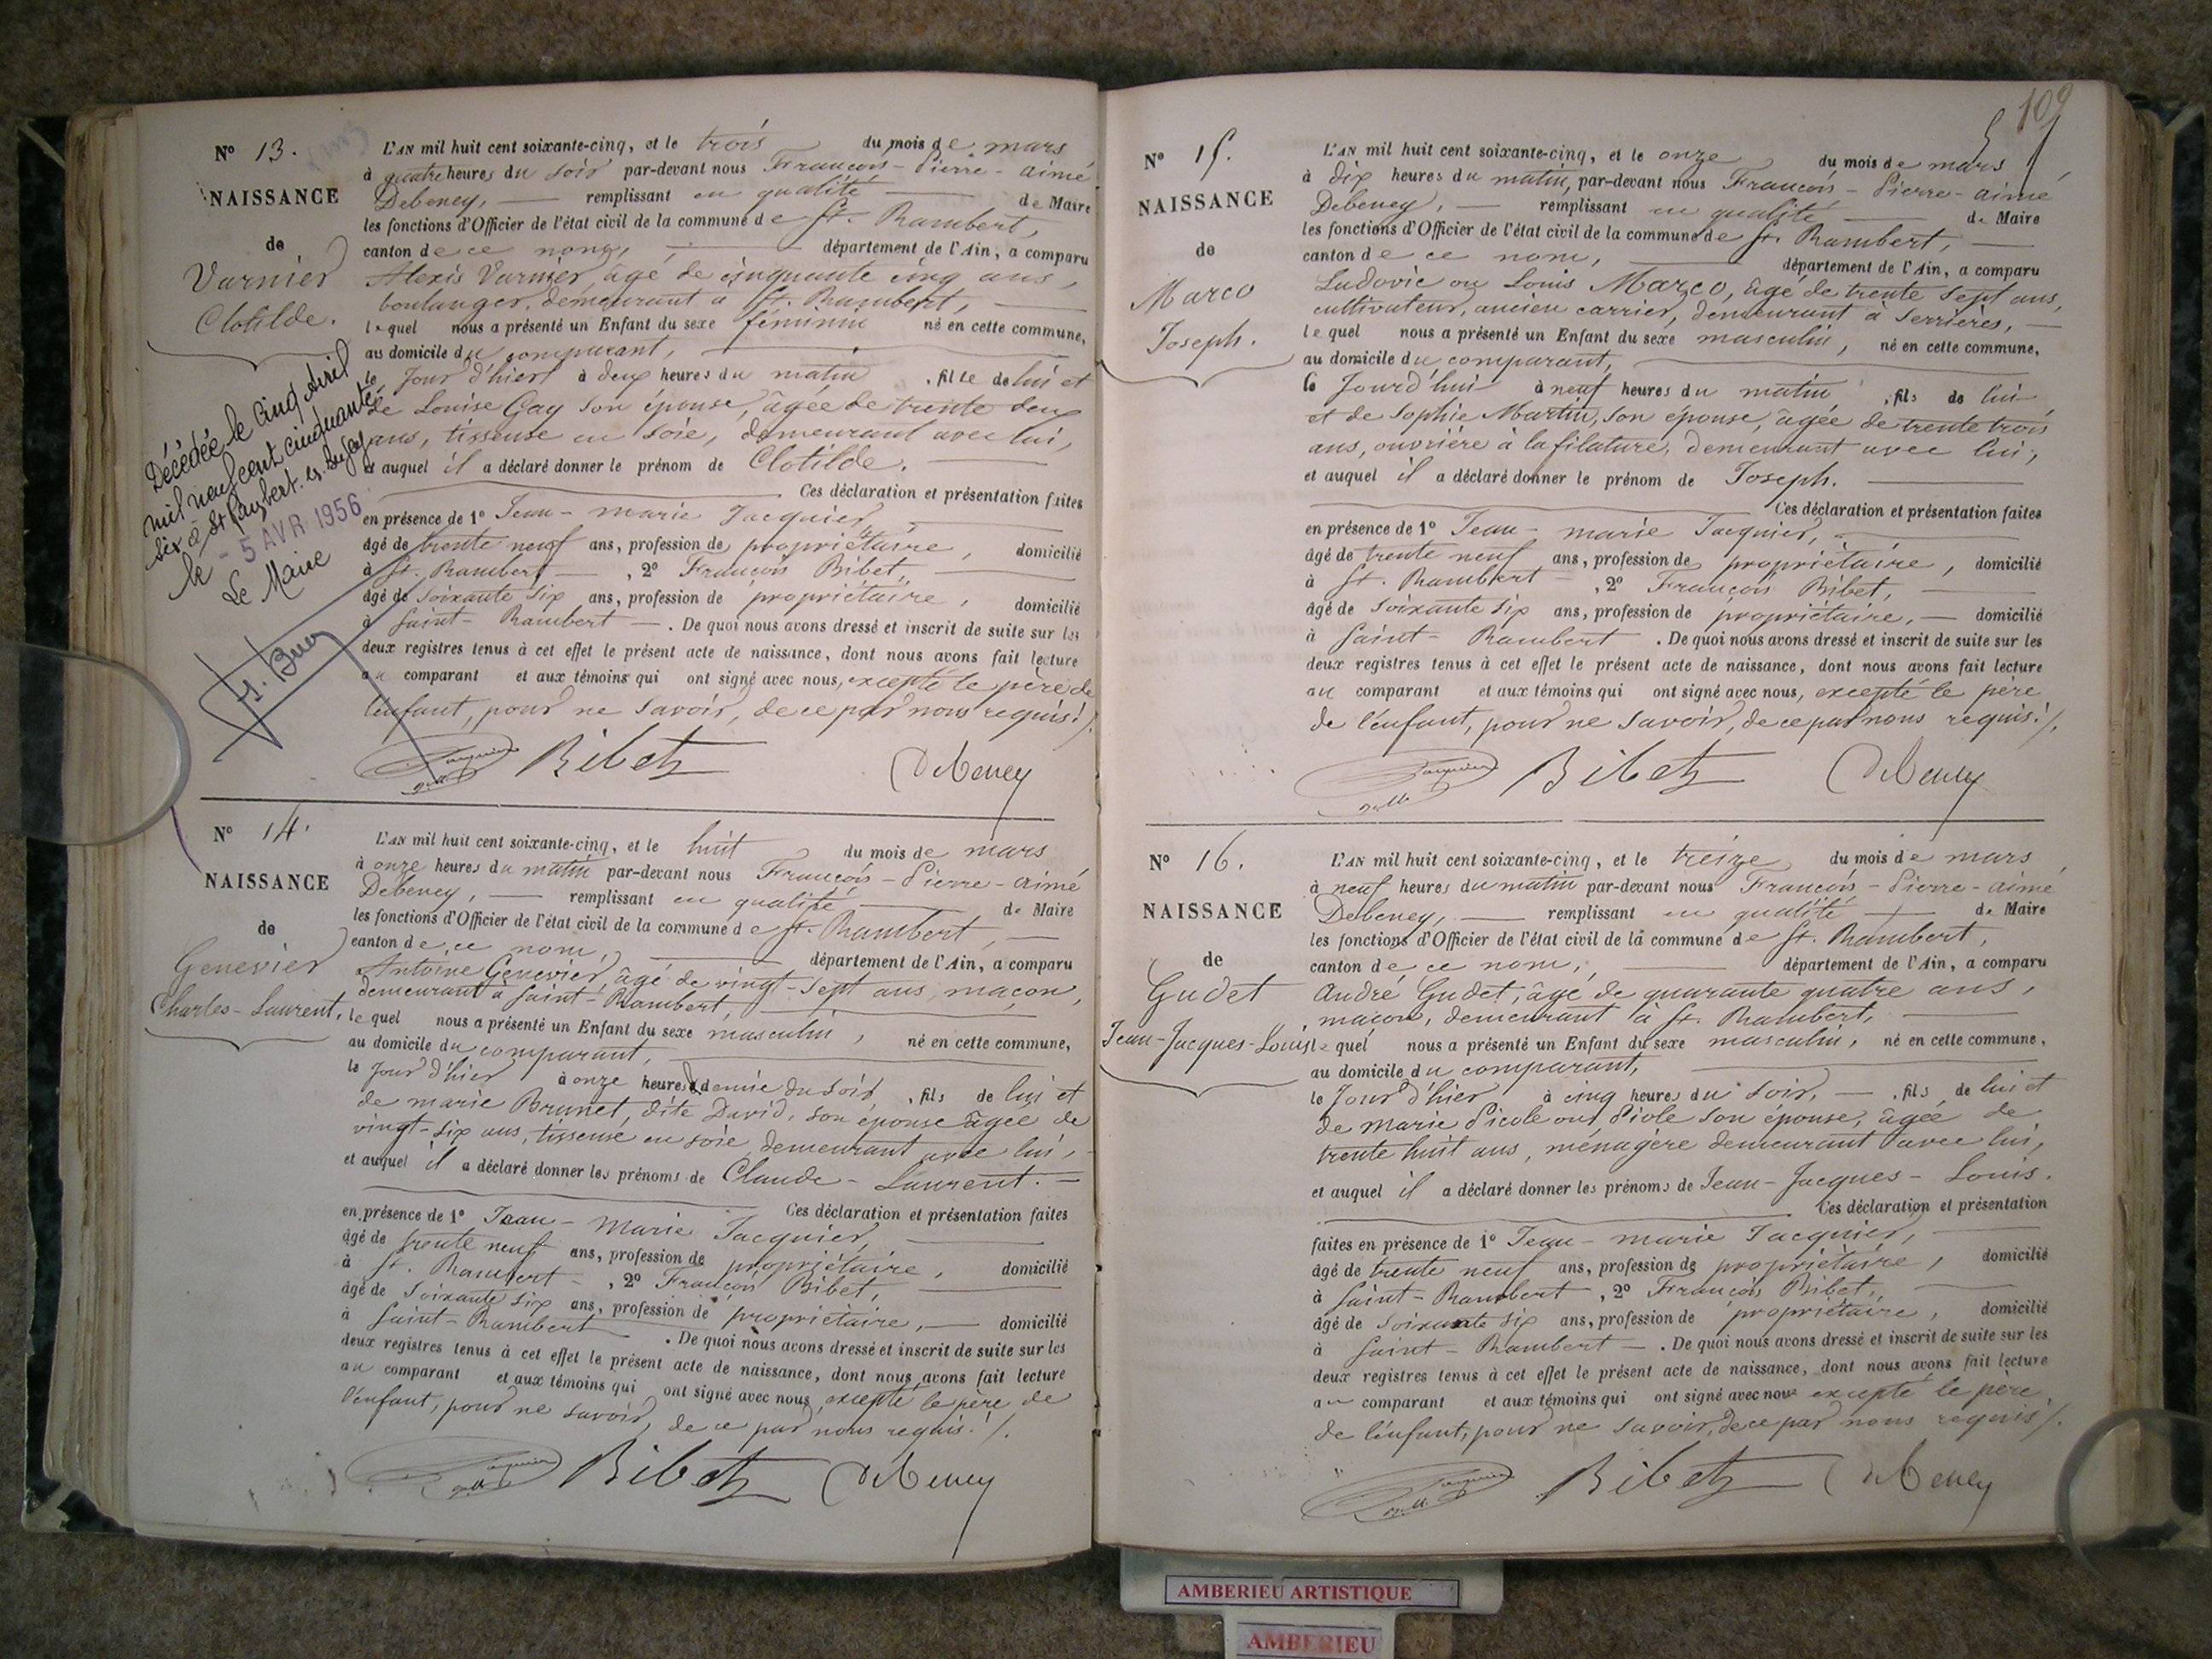 Nº 13.
NAISSANCE
de
Varnier
Clotilde.
Décédée le cinq Avril
mil neuf cent cinquante
six à St Rambert-en-Bugey
le - 5 AVR 1956
Le Maire
L'AN mil huit cent soixante-cinq, et le trois du mois de mars
à quatre heures du soir par-devant nous François-Pierre-aimé
Debeney, remplissant en qualité de Maire
les fonctions d'Officier de l'état civil de la commune de St. Rambert,
canton de ce nom, département de l'Ain, a comparu
Alexis Varnier, âgé de cinquante cinq ans,
boulanger, demeurant à St. Rambert,
lequel nous a présenté un Enfant du sexe féminin né en cette commune,
au domicile du comparant,
le Jour d'hier à deux heures du matin, fille de lui et
de Louise Gay son épouse, âgée de trente deux
ans, tisseuse en soie, demeurant avec lui,
et auquel il a déclaré donner le prénom de Clotilde.
Ces déclaration et présentation faites
en présence de 1º Jean-marie Jacquier,
âgé de trente neuf ans, profession de propriétaire, domicilié
à St. Rambert, 2º François Bibet,
âgé de soixante six ans, profession de propriétaire, domicilié
à Saint-Rambert. De quoi nous avons dressé et inscrit de suite sur les
deux registres tenus à cet effet le présent acte de naissance, dont nous avons fait lecture
au comparant et aux témoins qui ont signé avec nous, excepté le père de
l'enfant, pour ne savoir, de ce par nous requis./.
Jacquier Bibet Debeney
Nº 14.
NAISSANCE
de
Genevier
Charles-Laurent.
L'AN mil huit cent soixante-cinq, et le huit du mois de mars
à onze heures du matin par-devant nous François-Pierre-aimé
Debeney, remplissant en qualité de Maire
les fonctions d'Officier de l'état civil de la commune de St. Rambert,
canton de ce nom, département de l'Ain, a comparu
Antoine Genevier, âgé de vingt-sept ans, maçon,
demeurant à Saint-Rambert,
lequel nous a présenté un Enfant du sexe masculin, né en cette commune,
au domicile du comparant,
le Jour d'hier à onze heures & demie du soir, fils de lui et
de marie Brunet, dite David, son épouse âgée de
vingt-six ans, tisseuse en soie, demeurant avec lui,
et auquel il a déclaré donner les prénoms de Claude-Laurent.
Ces déclaration et présentation faites
en présence de 1º Jean-Marie Jacquier,
âgé de trente neuf ans, profession de propriétaire, domicilié
à St. Rambert, 2º François Bibet,
âgé de soixante six ans, profession de propriétaire, domicilié
à Saint-Rambert. De quoi nous avons dressé et inscrit de suite sur les
deux registres tenus à cet effet le présent acte de naissance, dont nous avons fait lecture
au comparant et aux témoins qui ont signé avec nous, excepté le père de
l'enfant, pour ne savoir, de ce par nous requis./.
Jacquier Bibet Debeney
109
Nº 15.
NAISSANCE
de
Marco
Joseph.
L'AN mil huit cent soixante-cinq, et le onze du mois de mars
à dix heures du matin, par-devant nous François-Pierre-aimé
Debeney, remplissant en qualité de Maire
les fonctions d'Officier de l'état civil de la commune de St. Rambert,
canton de ce nom, département de l'Ain, a comparu
Ludovic ou Louis Marco, âgé de trente sept ans,
cultivateur, ancien carrier, demeurant à Serrières,
lequel nous a présenté un Enfant du sexe masculin, né en cette commune,
au domicile du comparant,
le Jourd'hui à neuf heures du matin, fils de lui
et de Sophie Martin, son épouse, âgée de trente trois
ans, ouvrière à la filature, demeurant avec lui,
et auquel il a déclaré donner le prénom de Joseph.
Ces déclaration et présentation faites
en présence de 1º Jean-marie Jacquier,
âgé de trente neuf ans, profession de propriétaire, domicilié
à St. Rambert, 2º François Bibet,
âgé de soixante six ans, profession de propriétaire, domicilié
à Saint-Rambert. De quoi nous avons dressé et inscrit de suite sur les
deux registres tenus à cet effet le présent acte de naissance, dont nous avons fait lecture
au comparant et aux témoins qui ont signé avec nous, excepté le père
de l'enfant, pour ne savoir, de ce par nous requis./.
Jacquier Bibet Debeney
Nº 16.
NAISSANCE
de
Gudet
Jean-Jacques-Louis
L'AN mil huit cent soixante-cinq, et le treize du mois de mars
à neuf heures du matin par-devant nous François-Pierre-aimé
Debeney, remplissant en qualité de Maire
les fonctions d'Officier de l'état civil de la commune de St. Rambert,
canton de ce nom, département de l'Ain, a comparu
André Gudet, âgé de quarante quatre ans,
maçon, demeurant à St. Rambert,
lequel nous a présenté un Enfant du sexe masculin, né en cette commune,
au domicile du comparant,
le Jour d'hier à cinq heures du soir, fils de lui et
de Marie Picole ou Piole son épouse, âgée de
trente huit ans, ménagère demeurant avec lui,
et auquel il a déclaré donner les prénoms de Jean-Jacques-Louis.
Ces déclaration et présentation
faites en présence de 1º Jean-marie Jacquier,
âgé de trente neuf ans, profession de propriétaire, domicilié
à Saint-Rambert, 2º François Bibet,
âgé de soixante six ans, profession de propriétaire, domicilié
à Saint-Rambert. De quoi nous avons dressé et inscrit de suite sur les
deux registres tenus à cet effet le présent acte de naissance, dont nous avons fait lecture
au comparant et aux témoins qui ont signé avec nous excepté le père
de l'enfant, pour ne savoir, de ce par nous requis./.
Jacquier Bibet Debeney
AMBERIEU ARTISTIQUE
AMBERIEU